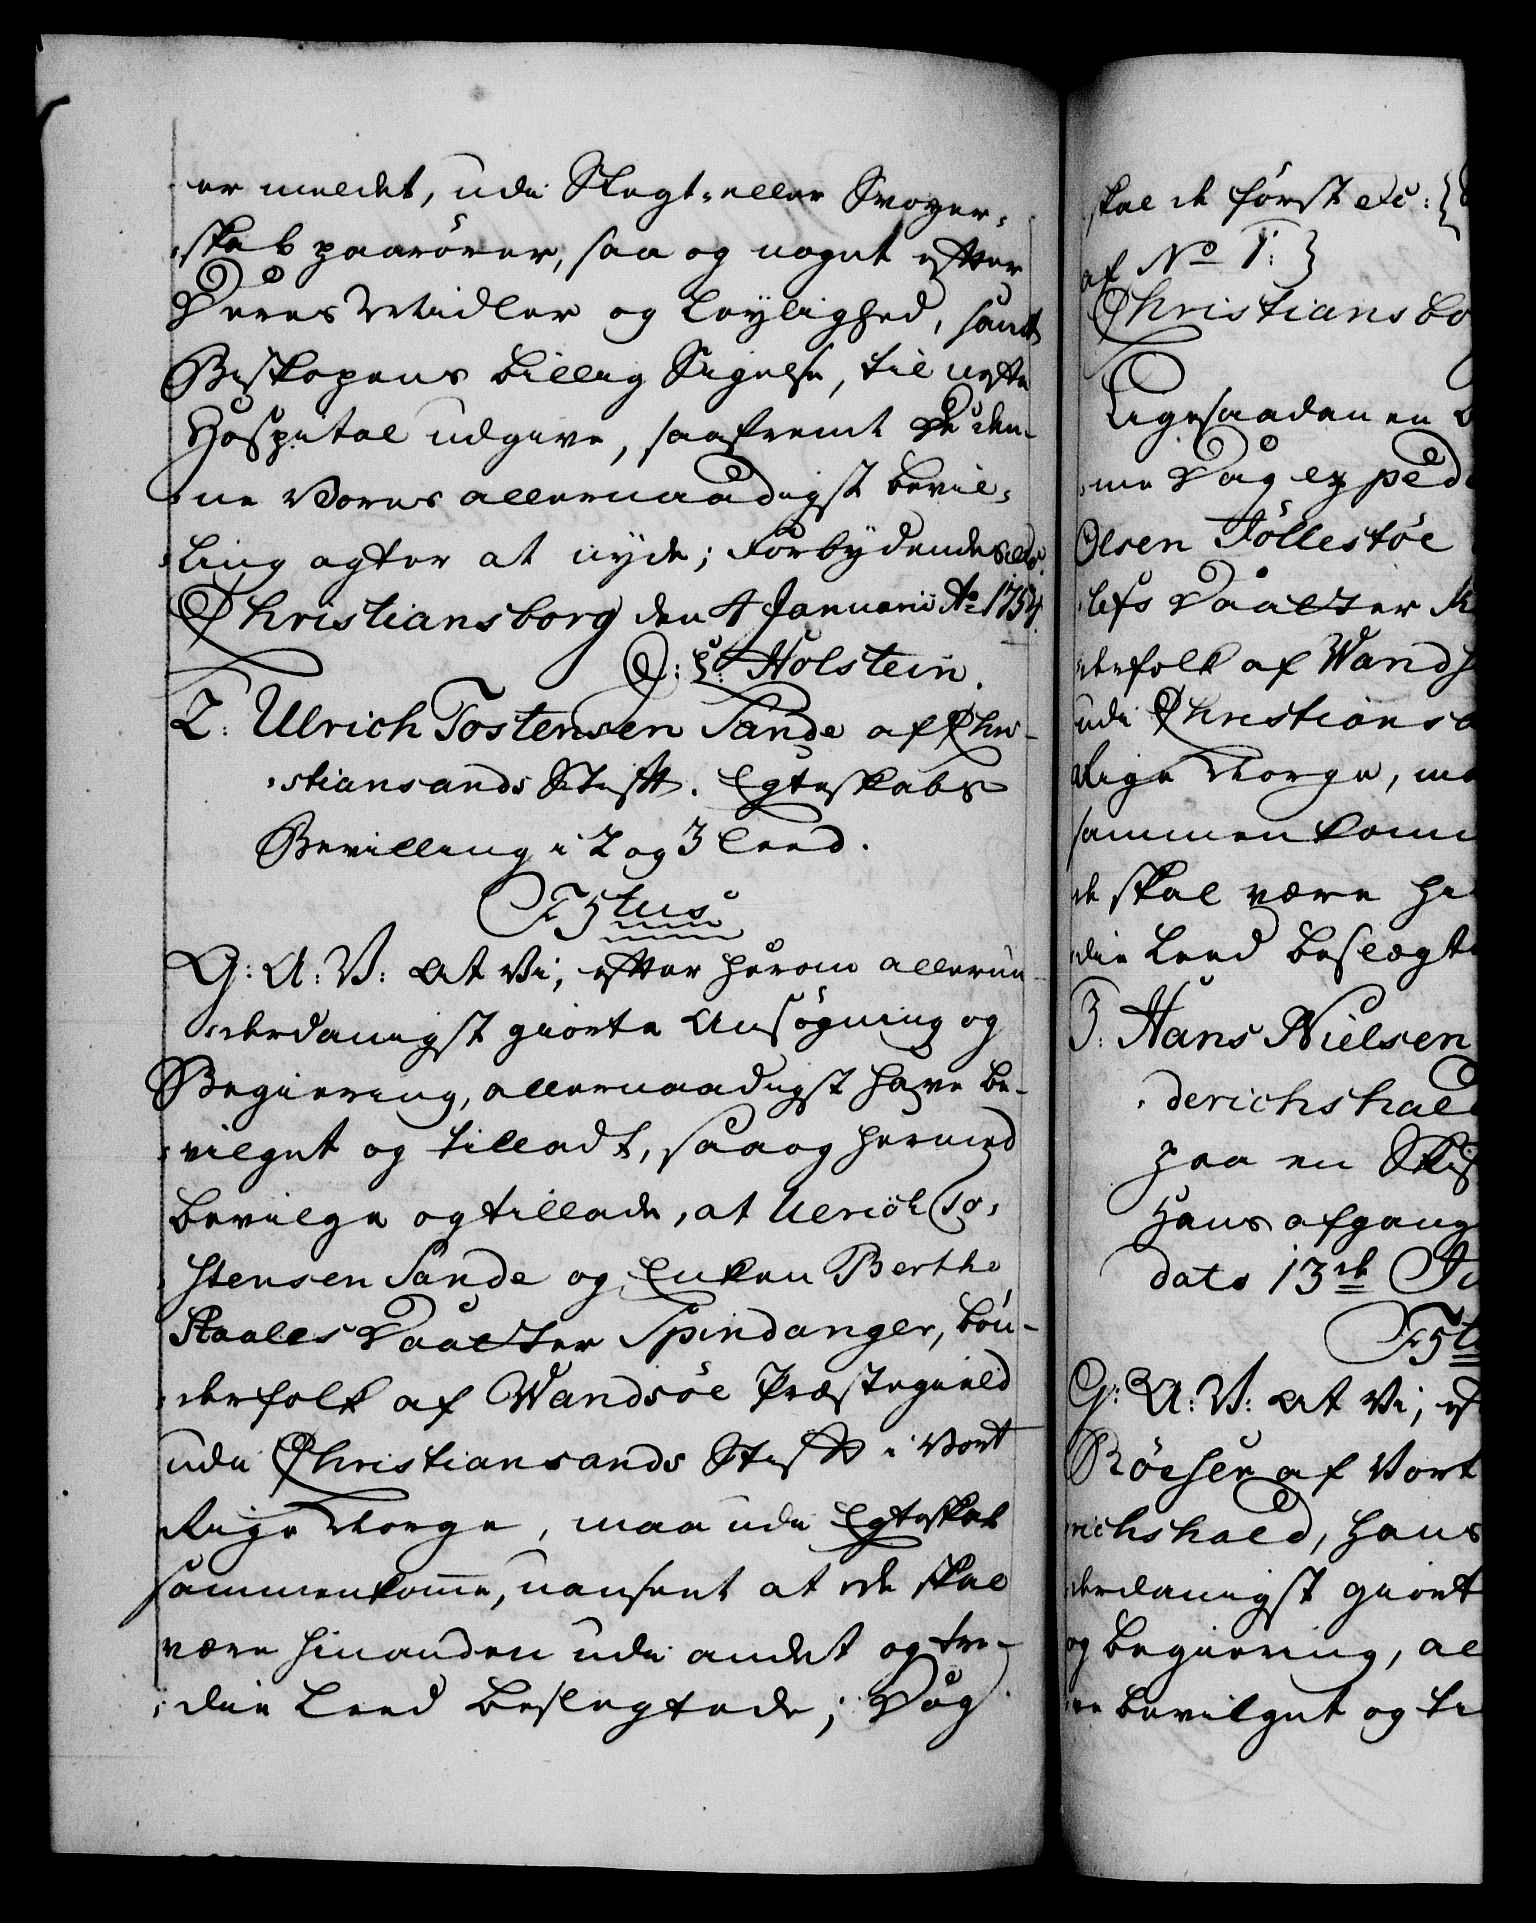 er meldet, udi Slegt- eller Svoger-
skab paarörer, saa og noget efter
Deres Midler og Leylighed, samt
Biskopens billig Sigelse, til neste
Hospital udgive, saafremt De den-
ne Vores allernaadigst bevil-
ling agter at nyde; Forbydendes alle.
Christiansborg den 4 Januarii Ao 1754.
J: L: Holstein.
2: Ulrich Tostensen Sande af Chri-
stiansands Stift. Egteskabs
Bevilling i 2 og 3 Leed.
F5tus
G: A: V: at Vi, efter herom allerun-
derdanigst giorte Ansögning og
Begiering, allernaadigst have be-
vilget og tilladt, saa og hermed
bevilge og tillade, at Ulrich To-
stensen Sande og Enken Berthe
Staales Daatter Spindanger, bön-
derfolk af Wandsöe Præstegield
udi Christiansands Stift i Vort
Rige Norge, maa udi Egteskab
sammenkomme, uanseet at de skal
være hinanden udi andet og tre-
die Leed beslegtede; Dog
skal de först etc: {
af No 1: }
Christiansbo
Ligesaadan en b
me Dag exped
Olsen Föllestöe
lefs Daatter
derfolk af Wands
udi Christiansa
Rige Norge, ma
sammenkom
de skal være hi
die Leed beslægt
3: Hans Nielsen
derichshald
paa en Skif
Hans afgang
dato 13de Ju
F5t
G: A: V: at Vi, ef
Röeser af Vort
richshald, Hans
derdanigst giort
og begiering, al
ve bevilget og ti